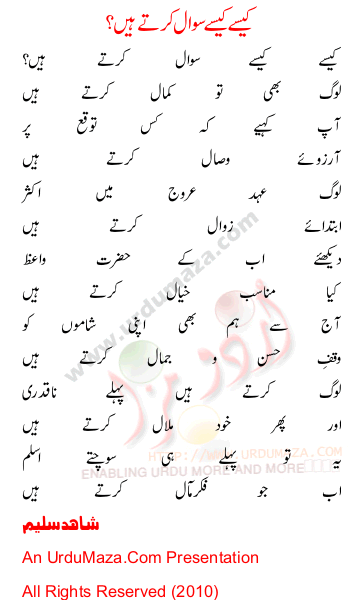 کیسے کیسے سوال کرتے ہیں؟
کیسے کیسے سوال کرتے ہیں؟
لوگ بھی تو کمال کرتے ہیں
آپ کہیے کہ کس توقع پر
آرزوئے وصال کرتے ہیں
لوگ عہد عروج میں اکثر
ابتدائے زوال کرتے ہیں
دیکھئے اب کے حضرت واعظ
کیا مناسب خیال کرتے ہیں
آج سے ہم بھی اپنی شاموں کو
وقفِ حسن و جمال کرتے ہیں
لوگ کرتے ہیں پہلے ناقدری
اور پھر خود ملال کرتے ہیں
یہ تو پہلے ہی سوچتے اسلم
اب جو فکرِمآل کرتے ہیں
شاھد سلیم
An UrduMaza.Com Presentation
All Rights Reserved (2010)
www.urdumaza.com
اردو مزا
WWW.URDUMAZA.COM
ENABLING URDU MORE AND MORE